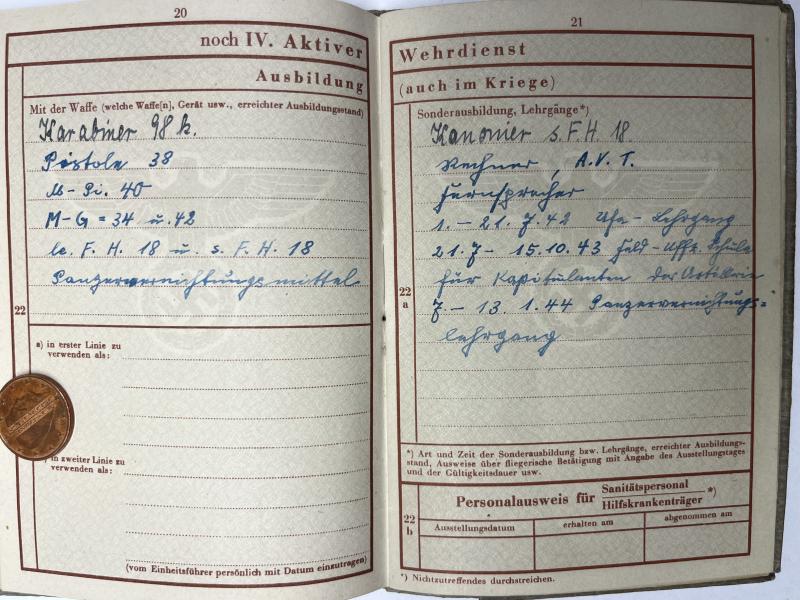 20
noch IV. Aktiver
Ausbildung
Mit der Waffe (welche Waffe[n], Gerät usw., erreichter Ausbildungsstand)
Karabiner 98 k.
Pistole 38
M-Pi. 40
M-G = 34 u. 42
le. F. H. 18 u. s. F. H. 18
Panzervernichtungsmittel
22
a) in erster Linie zu
verwenden als:
in zweiter Linie zu
verwenden als:
(vom Einheitsführer persönlich mit Datum einzutragen)
21
Wehrdienst
(auch im Kriege)
Sonderausbildung, Lehrgänge*)
Kanonier s. F. H. 18
Rechner, A.V.T.
Fernsprecher
1. - 21. 7. 42 Ufa - Lehrgang
21. 7 - 15. 10. 43 Feld - Uffz. Schule
für Kapitulanten der Artillerie
7. - 13. 1. 44 Panzervernichtungs=
lehrgang
22
a
*) Art und Zeit der Sonderausbildung bzw. Lehrgänge, erreichter Ausbildungs-
stand, Ausweise über fliegerische Betätigung mit Angabe des Ausstellungstages
und der Gültigkeitsdauer usw.
Personalausweis für Sanitätspersonal
Hilfskrankenträger *)
22
b
Ausstellungsdatum erhalten am abgenommen am
*) Nichtzutreffendes durchstreichen.